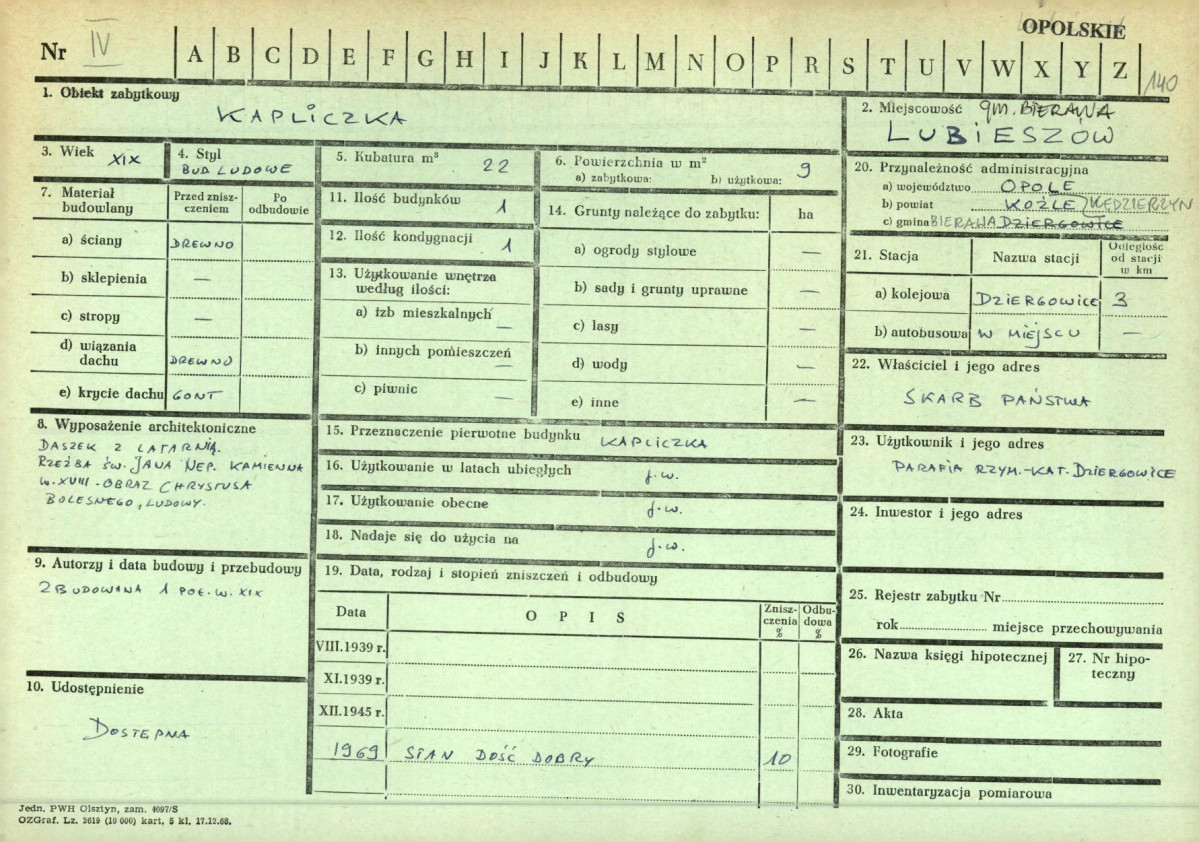 OPOLSKIE
Nr IV A B C D E F G H I J K L M N O P R S T U V W X Y Z 140
1. Obiekt zabytkowy
KAPLICZKA
2. Miejscowość gm. BIERAWA
LUBIESZÓW
3. Wiek XIX
4. Styl
BUD LUDOWE
5. Kubatura m³ 22
6. Powierzchnia w m² 9
a) zabytkowa: b) użytkowa:
7. Materiał budowlany
Przed zniszczeniem
Po odbudowie
a) ściany DREWNO
b) sklepienia —
c) stropy —
d) wiązania dachu DREWNO
e) krycie dachu GONT
8. Wyposażenie architektoniczne
DASZEK Z LATARNIĄ.
RZEŹBA ŚW. JANA NEP. KAMIENNA
W. XVIII - OBRAZ CHRYSTUSA
BOLESNEGO, LUDOWY.
9. Autorzy i data budowy i przebudowy
ZBUDOWANA 1 POŁ. W. XIX
10. Udostępnienie
DOSTĘPNA
11. Ilość budynków 1
12. Ilość kondygnacji 1
13. Użytkowanie wnętrza
według ilości:
a) izb mieszkalnych —
b) innych pomieszczeń —
c) piwnic —
14. Grunty należące do zabytku: ha
a) ogrody stylowe —
b) sady i grunty uprawne —
c) lasy —
d) wody —
e) inne —
15. Przeznaczenie pierwotne budynku KAPLICZKA
16. Użytkowanie w latach ubiegłych j.w.
17. Użytkowanie obecne j.w.
18. Nadaje się do użycia na j.w.
19. Data, rodzaj i stopień zniszczeń i odbudowy
Data OPIS Zniszczenia % Odbudowa %
VIII.1939 r.
XI.1939 r.
XII.1945 r.
1969 STAN DOŚĆ DOBRY 10
20. Przynależność administracyjna
a) województwo OPOLE
b) powiat KOŹLE KĘDZIERZYN
c) gmina BIERAWA DZIERGOWICE
21. Stacja Nazwa stacji Odległość od stacji w km
a) kolejowa DZIERGOWICE 3
b) autobusowa W MIEJSCU —
22. Właściciel i jego adres
SKARB PAŃSTWA
23. Użytkownik i jego adres
PARAFIA RZYM.-KAT. DZIERGOWICE
24. Inwestor i jego adres
25. Rejestr zabytku Nr
rok miejsce przechowywania
26. Nazwa księgi hipotecznej
27. Nr hipoteczny
28. Akta
29. Fotografie
30. Inwentaryzacja pomiarowa
Jedn. PWH Olsztyn, zam. 4097/S
OZGraf. Lz. 2619 (10 000) kart, 5 kl. 17.12.68.